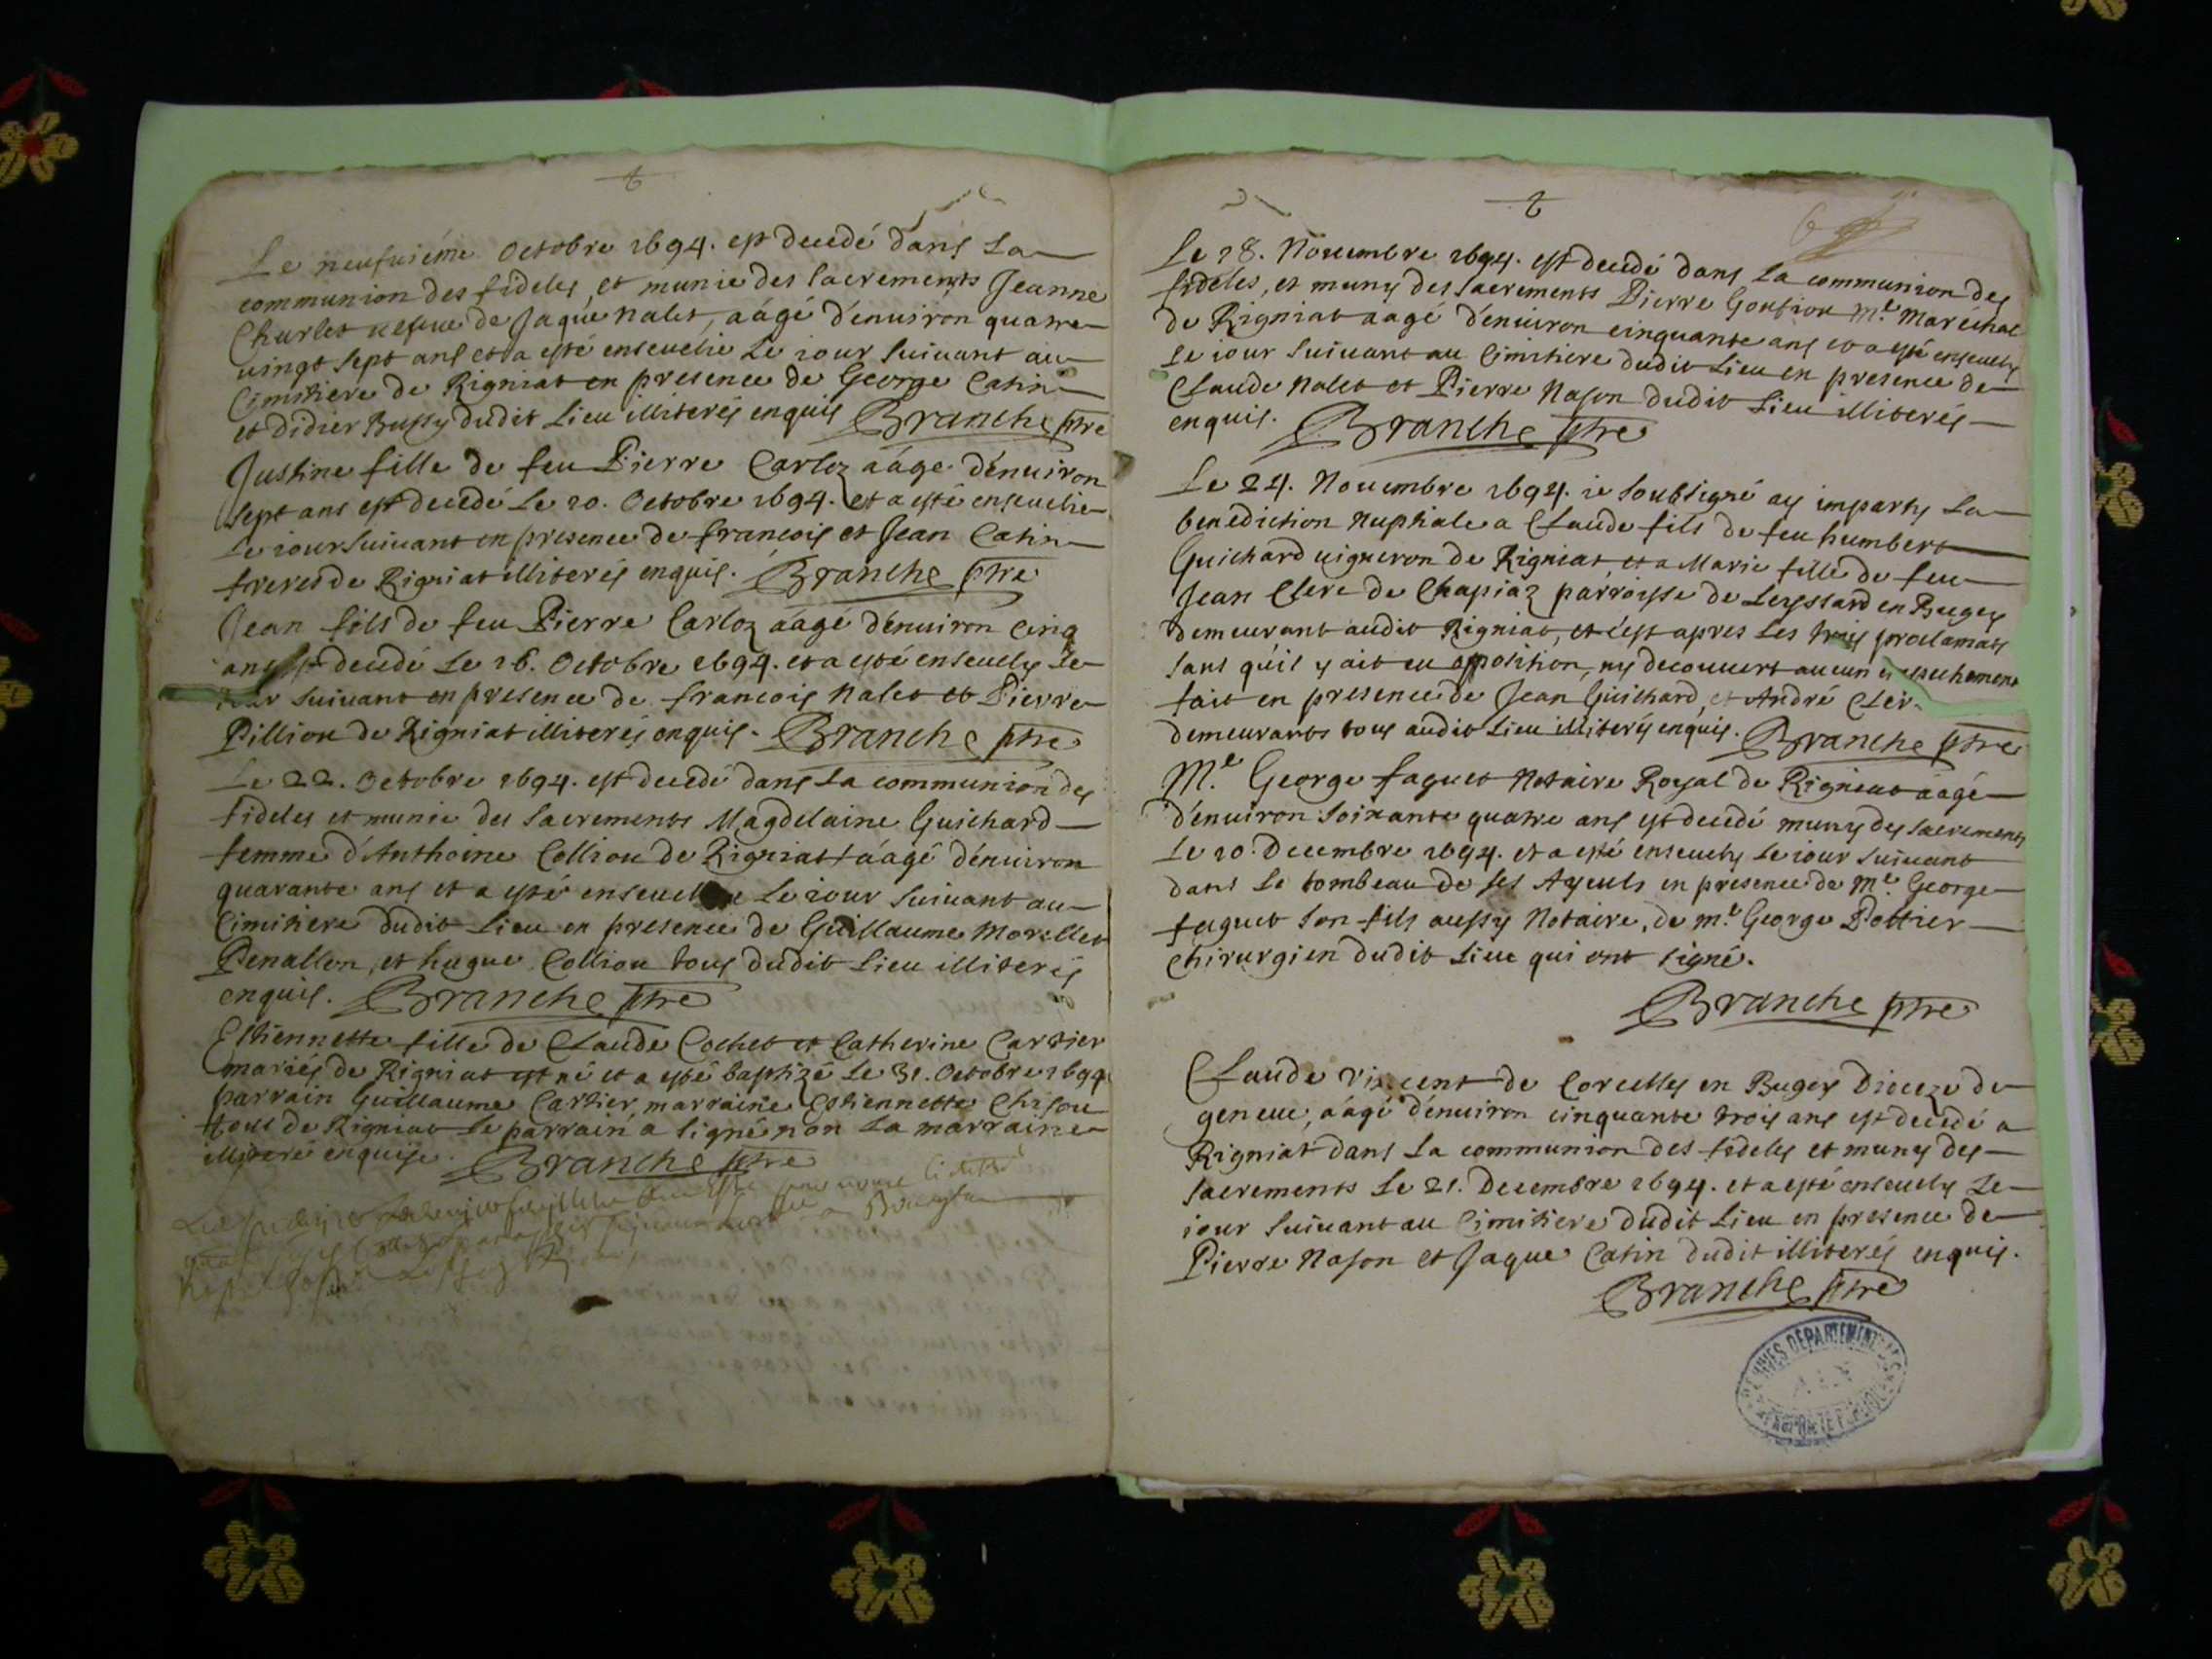 Le neufuiéme Octobre 1694. est decedé dans La
communion des fideles, et munie des sacrements Jeanne
Churlet vefue de Jaque Nalet, aágé d'enuiron quatre
uingt sept ans et a esté enseuelie Le iour suiuant au
Cimitiere de Rigniat en presence de George Catin
et Didier Bussy dudit Lieu illiterés enquis Branche ptre
Justine fille de feu Pierre Carloz aágé d'enuiron
sept ans est decedé Le 10. Octobre 1694. et a esté enseuelie
Le iour suiuant en presence de francois et Jean Catin
freres de Rigniat illiterés enquis. Branche ptre
Jean fils de feu Pierre Carloz aágé d'enuiron cinq
ans est decedé Le 16. Octobre 1694. et a esté enseuely Le
iour suiuant en presence de francois Nalet et Pierre
Pilliou de Rigniat illiterés enquis. Branche ptre
Le 22. Octobre 1694. est decedé dans La communion des
fideles et munie des sacrements Magdelaine Guichard
femme d'Anthoine Colliou de Rigniat aágé d'enuiron
quarante ans et a esté enseuelie Le iour suiuant au
Cimitiere dudit Lieu en presence de Guillaume Morellet
Penallon, et hugue Colliou tous dudit Lieu illiterés
enquis. Branche ptre
Estiennette fille de Claude Cochet et Catherine Cartier
mariés de Rigniat est né et a esté baptizé Le 31. Octobre 1694
parrain Guillaume Cartier, marraine Estiennette Chisou
tous de Rigniat Le parrain a signé non La marraine
illiteré enquise. Branche ptre
Le 18. Nouembre 1694. est decedé dans La communion des
fideles, et muny des sacrements Pierre Goutiou Me. Maréchal
de Rigniat aagé d'enuiron cinquante ans et a esté enseuely
Le iour suiuant au Cimitiere dudit Lieu en presence de
Claude Nalet et Pierre Nason dudit Lieu illiterés
enquis. Branche ptre
Le 24. Nouembre 1694. ie soubsigné ay imparty La
benediction Nuptiale a Claude fils de feu humbert
Guichard uigneron de Rigniat, et a Marie fille de feu
Jean Clere de Chapiaz parroisse de Leyssard en Bugey
demeurant audit Rigniat, et c'est apres Les trois proclamats
sans qu'il y ait eu opposition, ny decouuert aucun
fait en presence de Jean Guichard, et André Cler
demeurants tous audit Lieu illiterés enquis. Branche ptre
Me. George faguet Notaire Royal de Rigniat aágé
d'enuiron soixante quatre ans est decedé muny des sacrements
Le 10. Decembre 1694. et a esté enseuely Le iour suiuant
dans Le tombeau de ses Ayeuls en presence de Me. George
faguet son fils aussy Notaire, de Me. George Pottier
Chirurgien dudit Lieu qui ont signé.
Branche ptre
Claude Vincent de Corcelles en Bugey Dioceze de
geneue, aágé d'enuiron cinquante trois ans est decedé a
Rigniat dans La communion des fideles et muny des
sacrements Le 21. Decembre 1694. et a esté enseuely Le
iour suiuant au Cimitiere dudit Lieu en presence de
Pierre Nason et Jaque Catin dudit illiterés enquis.
Branche ptre